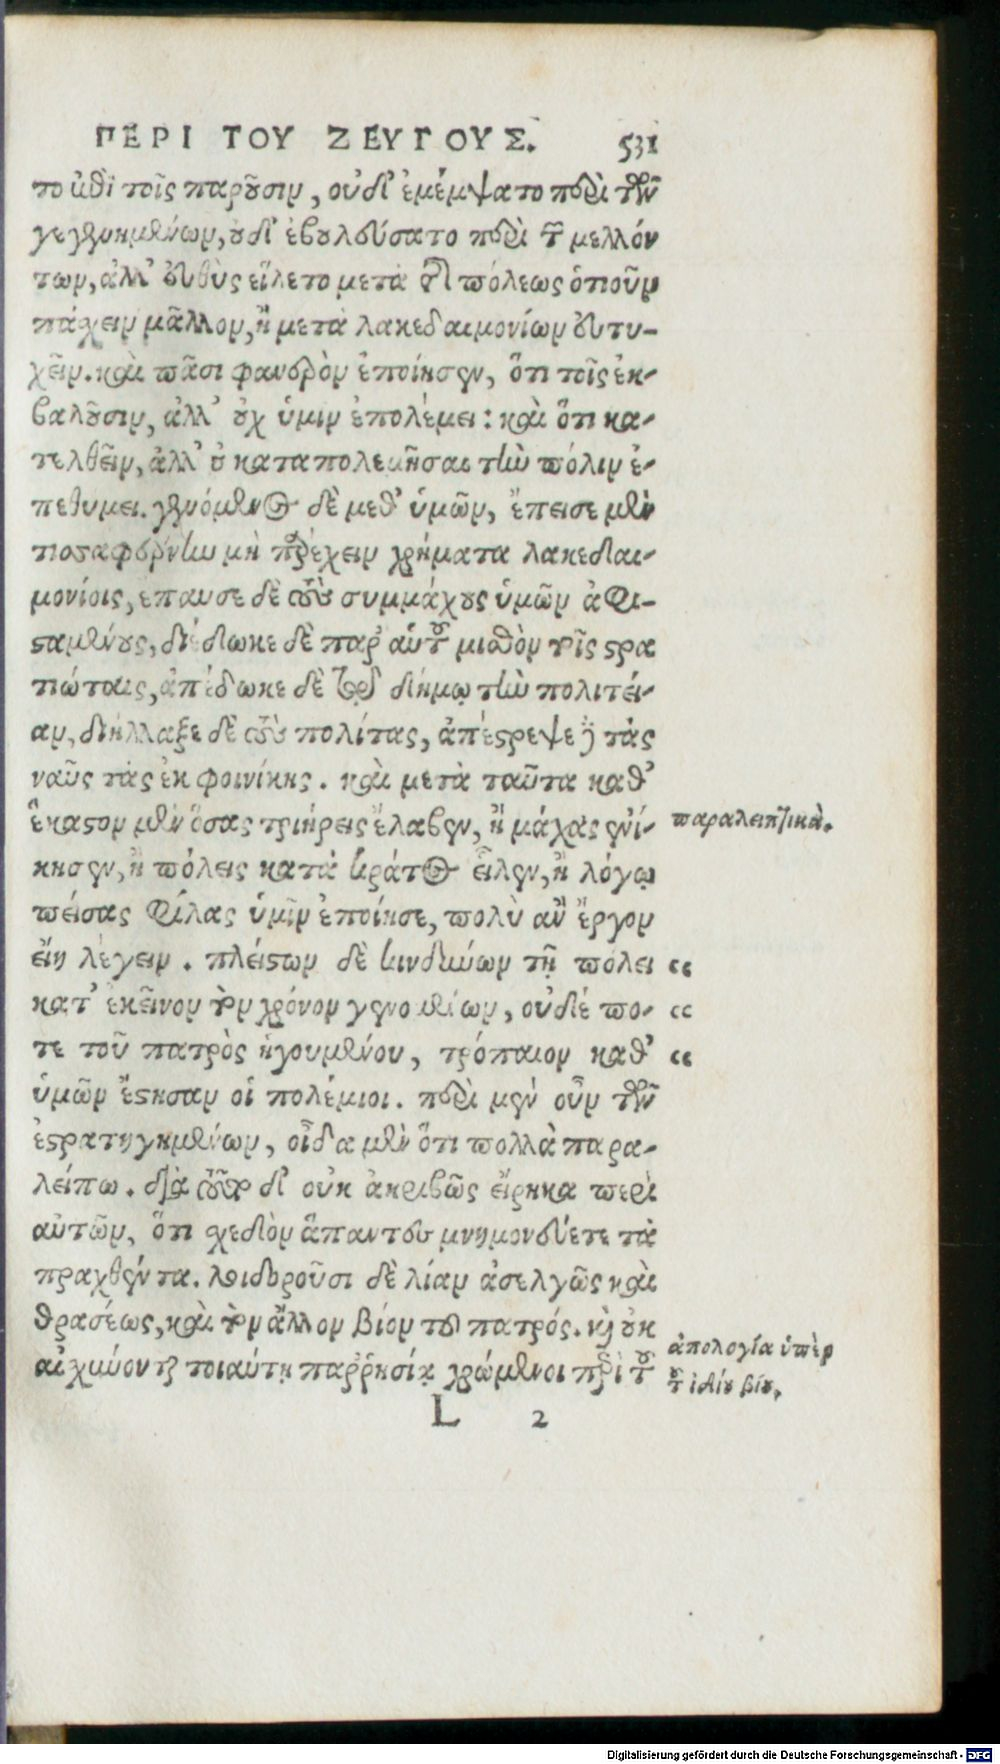 ΠΕΡΙ ΤΟΥ ΖΕΥΓΟΥΣ. 531
το ἐπὶ τοῖς παροῦσιν, οὐδ' ἐμέμψατο περὶ τῶν
γεγενημένων, οὐδ' ἐβουλεύσατο περὶ τῶν μελλόν
των, ἀλλ' εὐθὺς εἵλετο μετὰ τῆς πόλεως ὁτιοῦν
πάσχειν μᾶλλον, ἢ μετὰ λακεδαιμονίων εὐτυ-
χεῖν. καὶ πᾶσι φανερὸν ἐποίησεν, ὅτι τοῖς ἐκ-
βαλοῦσιν, ἀλλ' οὐχ ὑμῖν ἐπολέμει: καὶ ὅτι κα-
τελθεῖν, ἀλλ' οὐ καταπολεμῆσαι τὴν πόλιν ἐ-
πεθυμει. γενόμενος δὲ μεθ' ὑμῶν, ἔπεισε μὲν
τισσαφέρνην μὴ παρέχειν χρήματα λακεδαι-
μονίοις, ἔπαυσε δὲ τοὺς συμμάχους ὑμῶν ἀφι-
σταμένους, διέδωκε δὲ παρ' αὑτοῦ μισθὸν τοῖς στρα
τιώταις, ἀπέδωκε δὲ τῷ δήμῳ τὴν πολιτεί-
αν, διήλλαξε δὲ τοὺς πολίτας, ἀπέστρεψε δὲ τὰς
ναῦς τὰς ἐκ φοινίκης. καὶ μετὰ ταῦτα καθ'
ἕκαστον μὲν ὅσας τριήρεις ἔλαβεν, ἢ μάχας ἐνί-
κησεν, ἢ πόλεις κατὰ κράτος εἷλεν, ἢ λόγῳ
πείσας φίλας ὑμῖν ἐποίησε, πολὺ ἂν ἔργον
εἴη λέγειν. πλείστων δὲ κινδύνων τῇ πόλει "
κατ' ἐκεῖνον τὸν χρόνον γενομένων, οὐδέ πο- "
τε τοῦ πατρὸς ἡγουμένου, τρόπαιον καθ' "
ὑμῶν ἔστησαν οἱ πολέμιοι. περὶ μὲν οὖν τῶν
ἐστρατηγημένων, οἶδα μὲν ὅτι πολλὰ παρα-
λείπω. διὰ τοῦτο δ' οὐκ ἀκριβῶς εἴρηκα περὶ
αὐτῶν, ὅτι σχεδὸν ἅπαντες μνημονεύετε τὰ
πραχθέντα. λοιδοροῦσι δὲ λίαν ἀσελγῶς καὶ
θρασέως, καὶ τὸν ἄλλον βίον τὸν τοῦ πατρός. καὶ οὐκ
αἰσχύνονται τοιαύτῃ παῤῥησίᾳ χρώμενοι περὶ τοῦ
L 2
παραλειπτικά.
ἀπολογία ὑπὲρ
τοῦ ἰδίου βίου.
Digitalisierung gefördert durch die Deutsche Forschungsgemeinschaft - DFG